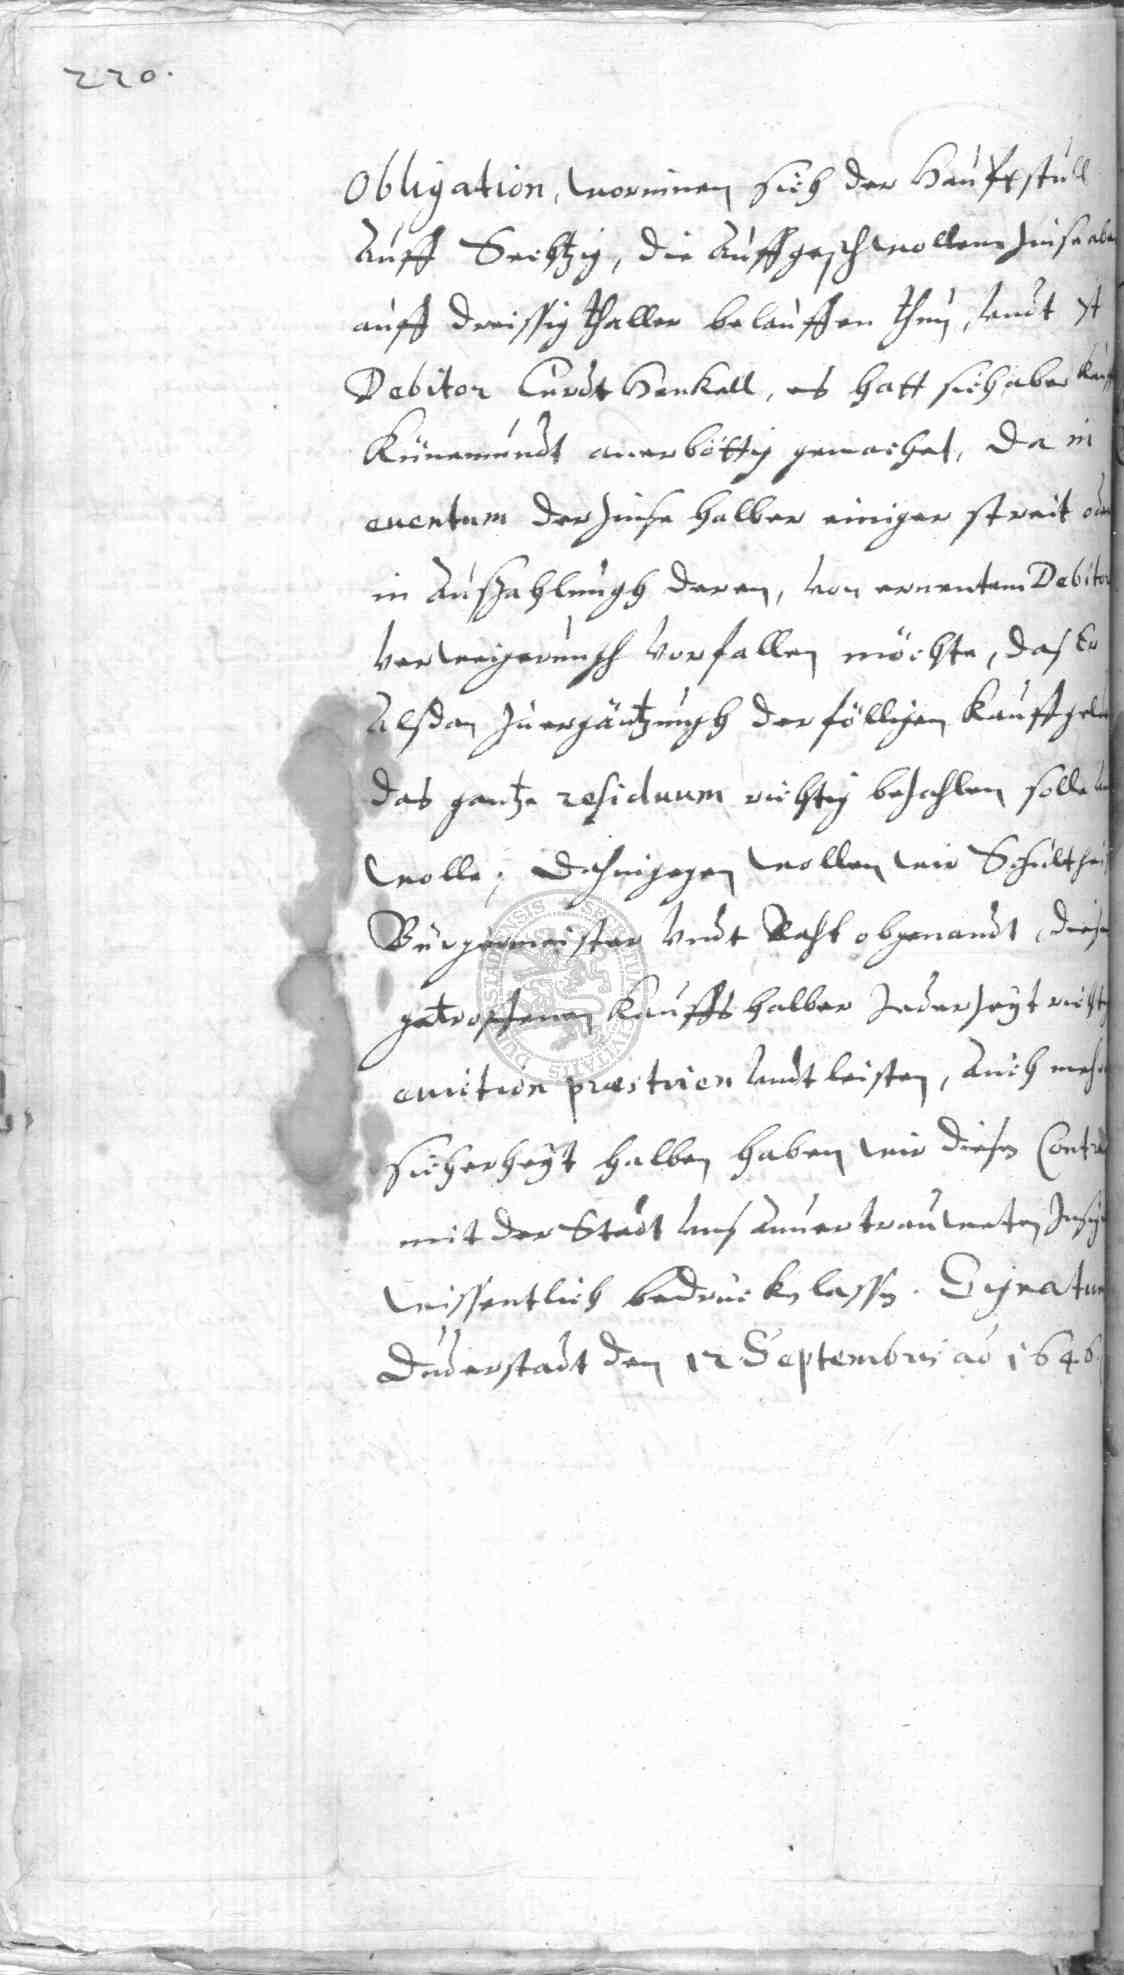 220.
Obligation, worinnen sich der Haupftstull
Auff Sechtzig, die Auffgeschwollene Zinse aber
auff dreissig thaller belauffen thun, undt ist
Debitor Curdt Henkell, es hatt sich aber
Künemundt anerböttig gemachet, da in
euentum der Zinse halber einiger streit oder
in Auszahlungh deren, von ernentem Debitor
verweigerungh vorfallen möchte, das Er
Alsdan Zu ergäntzungh der fölligen Kauffgelder
das gantze residuum richtig bezahlen solle
wolle, Dahingegen wollen wir Schultheis
Bürgermeister undt Raht obgenandt, diesen
getroffenen Kauffs halber Jederzeyt richtig
euiction præstiren undt leisten, Auch mehr
sicherheyt halben haben wir diesen Contract
mit der Stadt uns Anuertrauweten
wissentlich bedrucken lassen. Signatum
Duderstadt den 12 Septembris ao 1646
DUDERSTADENSIS CIVITATIS